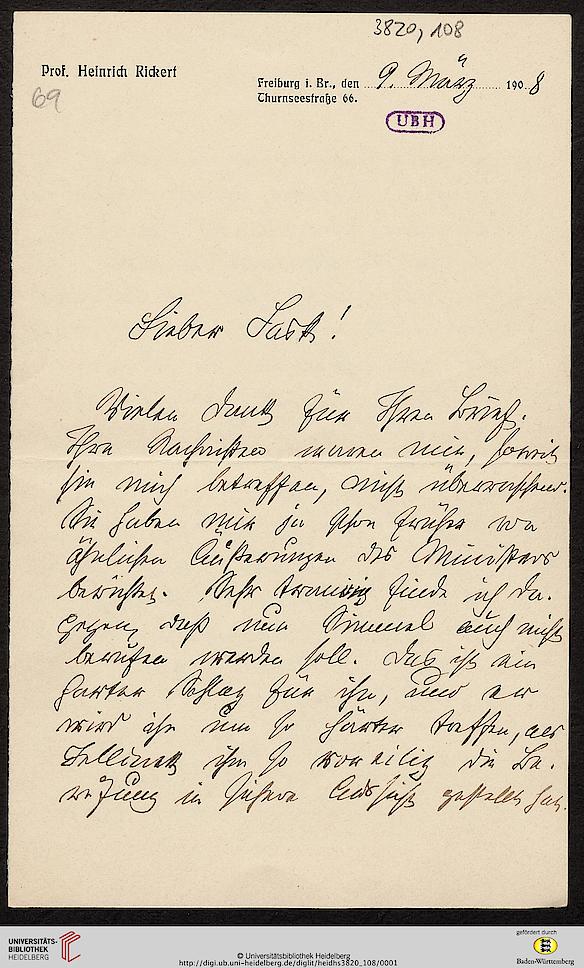 3820, 108
Prof. Heinrich Rickert
69
Freiburg i. Br., den 9. März 1908
Thurnseestraße 66.
UBH
Lieber Lask!
Vielen Dank für Ihren Brief.
Ihre Nachrichten waren mir, soweit
sie mich betreffen, nicht überraschend.
Sie haben mir ja schon früher von
ähnlichen Äußerungen des Ministers
berichtet. Sehr traurig finde ich da-
gegen, daß nun Simmel auch nicht
berufen werden soll. Das ist ein
harter Schlag für ihn, und er
wird ihn um so härter treffen, als
Jellinek ihm so voreilig die Be-
rufung in sichere Aussicht gestellt hat.
UNIVERSITÄTS-
BIBLIOTHEK
HEIDELBERG
© Universitätsbibliothek Heidelberg
http://digi.ub.uni-heidelberg.de/diglit/heidhs3820_108/0001
gefördert durch
Baden-Württemberg